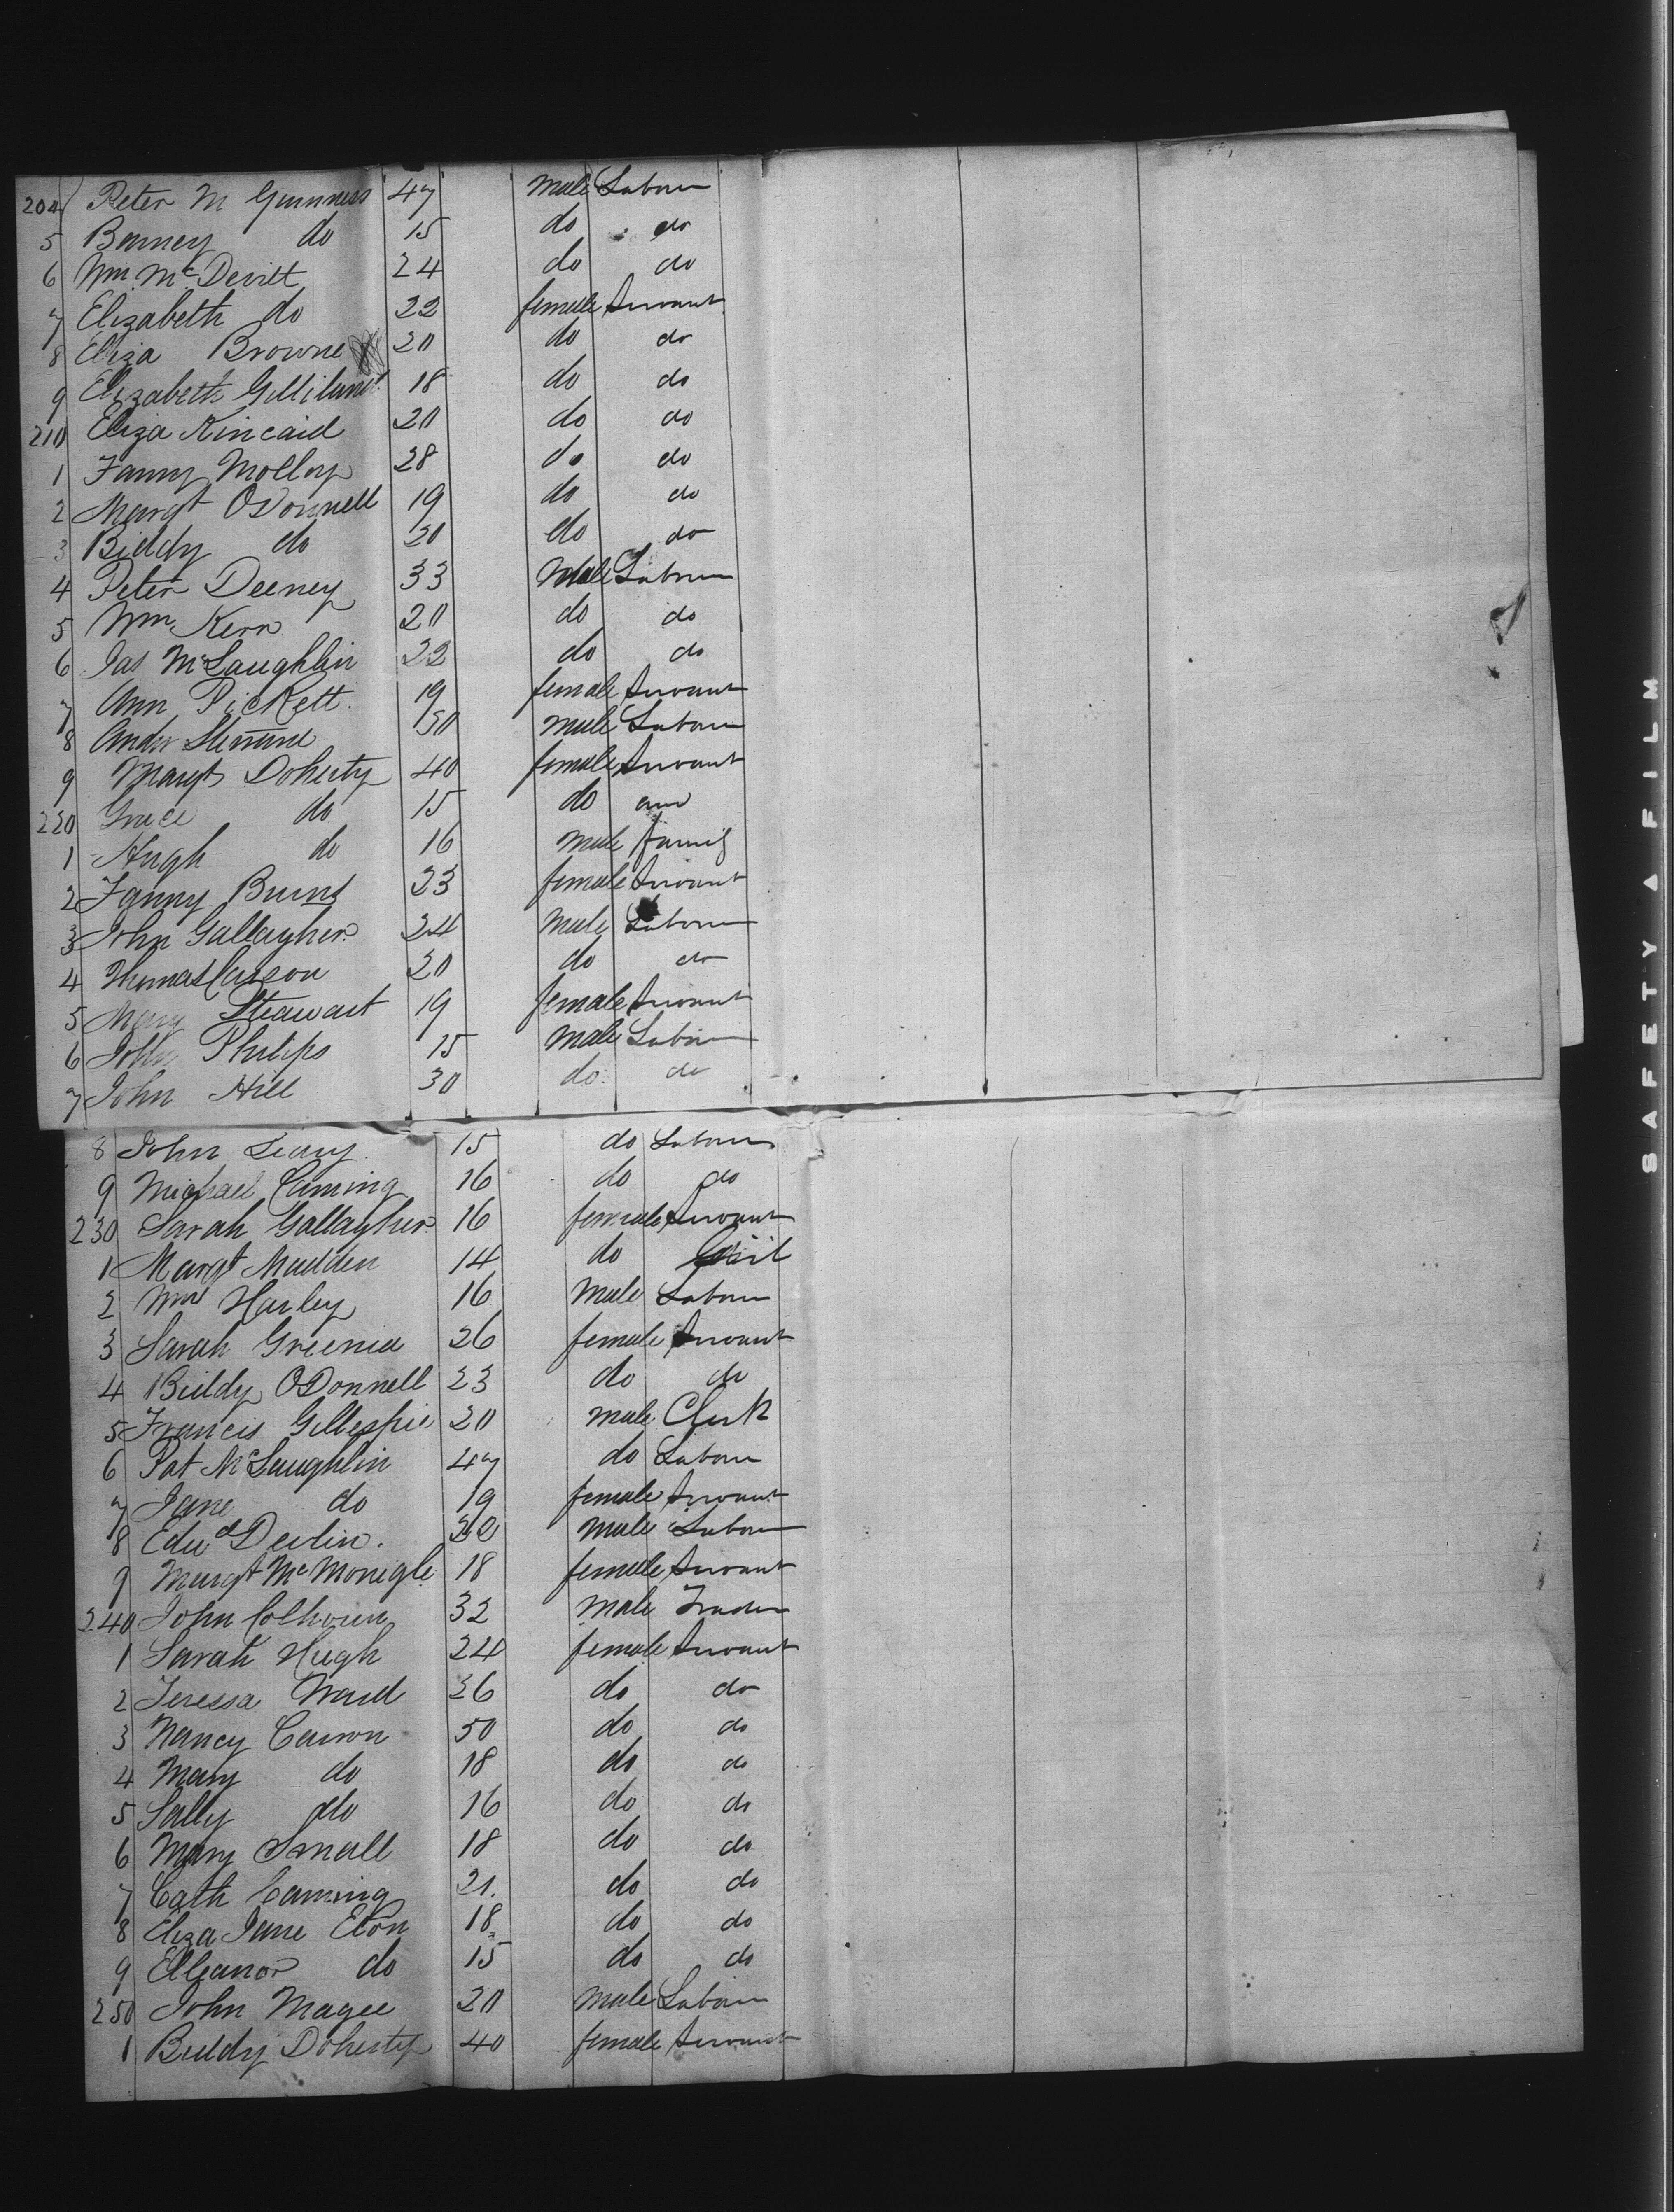 204 Peter McGuinness 47 male Labourer
5 Barney do 15 do do
6 Wm McDevitt 24 do do
7 Elizabeth do 22 female Servant
8 Eliza Browne 20 do do
9 Elizabeth Gilliland 18 do do
210 Eliza Kincaid 20 do do
1 Fanny Molloy 28 do do
2 Margt ODonnell 19 do do
3 Biddy do 20 do do
4 Peter Deeney 33 Male Labourer
5 Wm Kerr 20 do do
6 Jas McLaughlin 22 do do
7 Ann Pickett 19 female Servant
8 Andw 30 male Labourer
9 Margt Doherty 40 female Servant
220 Grace do 15 do and
1 Hugh do 16 male family
2 Fanny Burns 23 female Servant
3 John Gallagher 24 male Labourer
4 Thomas Carson 20 do do
5 Mary Steawart 19 female Servant
6 John Philips 15 male Labourer
7 John Hill 30 do do
8 John Leary 15 do Labourer
9 Michael Caming 16 do do
230 Sarah Gallagher 16 female Servant
1 Margt Madden 14 do Girl
2 Wm Harley 16 Male Labourer
3 Sarah 26 female Servant
4 Biddy ODonnell 23 do do
5 Francis Gillespie 20 male Clerk
6 Pat McLaughlin 47 do Labourer
7 Jane do 19 female Servant
8 Edwd Devlin. male Labourer
9 Margt McMonigle 18 female Servant
240 John Colhoun 32 male Trader
1 Sarah Hugh 24 female Servant
2 Teressa Ward 36 do do
3 Nancy 50 do do
4 Mary do 18 do do
5 Sally do 16 do do
6 Mary Small 18 do do
7 Cath Caming 21. do do
8 Eliza Jane Eton 18 do do
9 Elleanor do 15 do do
250 John Magee 20 male Labourer
1 Biddy Doherty 40 female Servant
SAFETY FILM